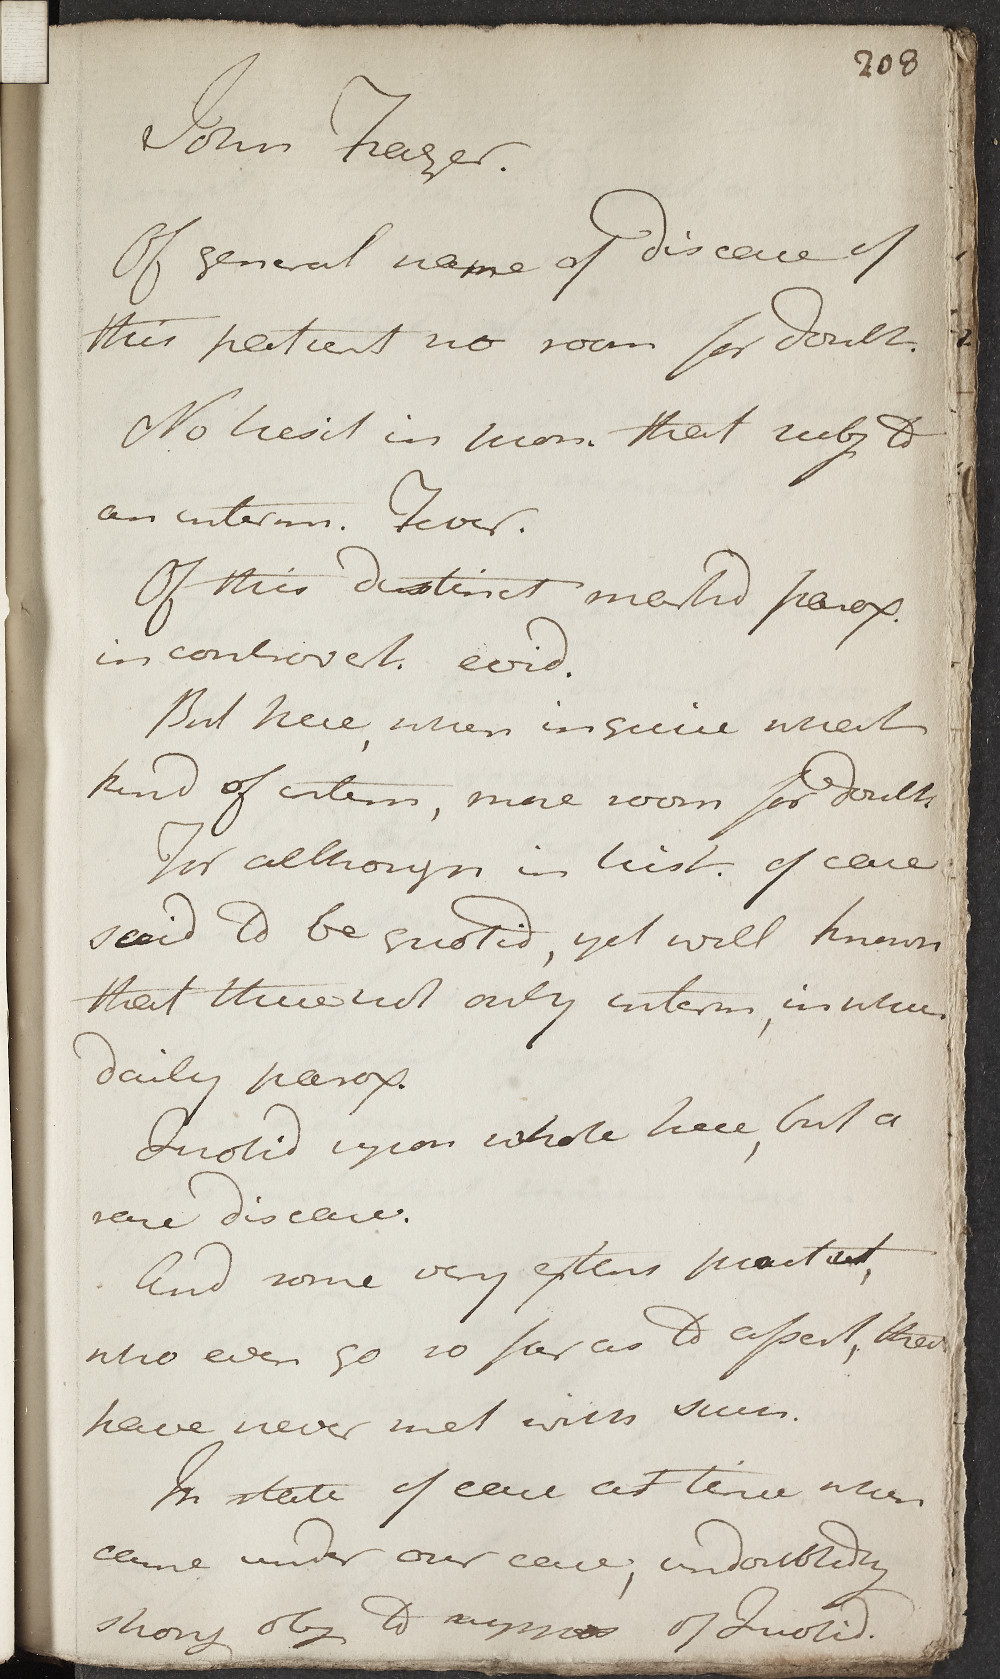 208
John Frazer.
Of general name of Disease of
this patient no room for Doubt.
No hesit in pron. that subj to
an interm. Fever.
Of this distinct mark'd parox.
incontrovert. evid.
But here, when inquire what
kind of interm, more room for doubt
For although in hist. of case
said to be quotid, yet well known
that this not only interm, in when
daily parox.
Quotid upon whole here, but a
rare disease.
And some very extens practict,
who even go so far as to assert, they
have never met with such.
In state of case at time when
came under our care, undoubtedly
strong obj to suppos of Quotid.